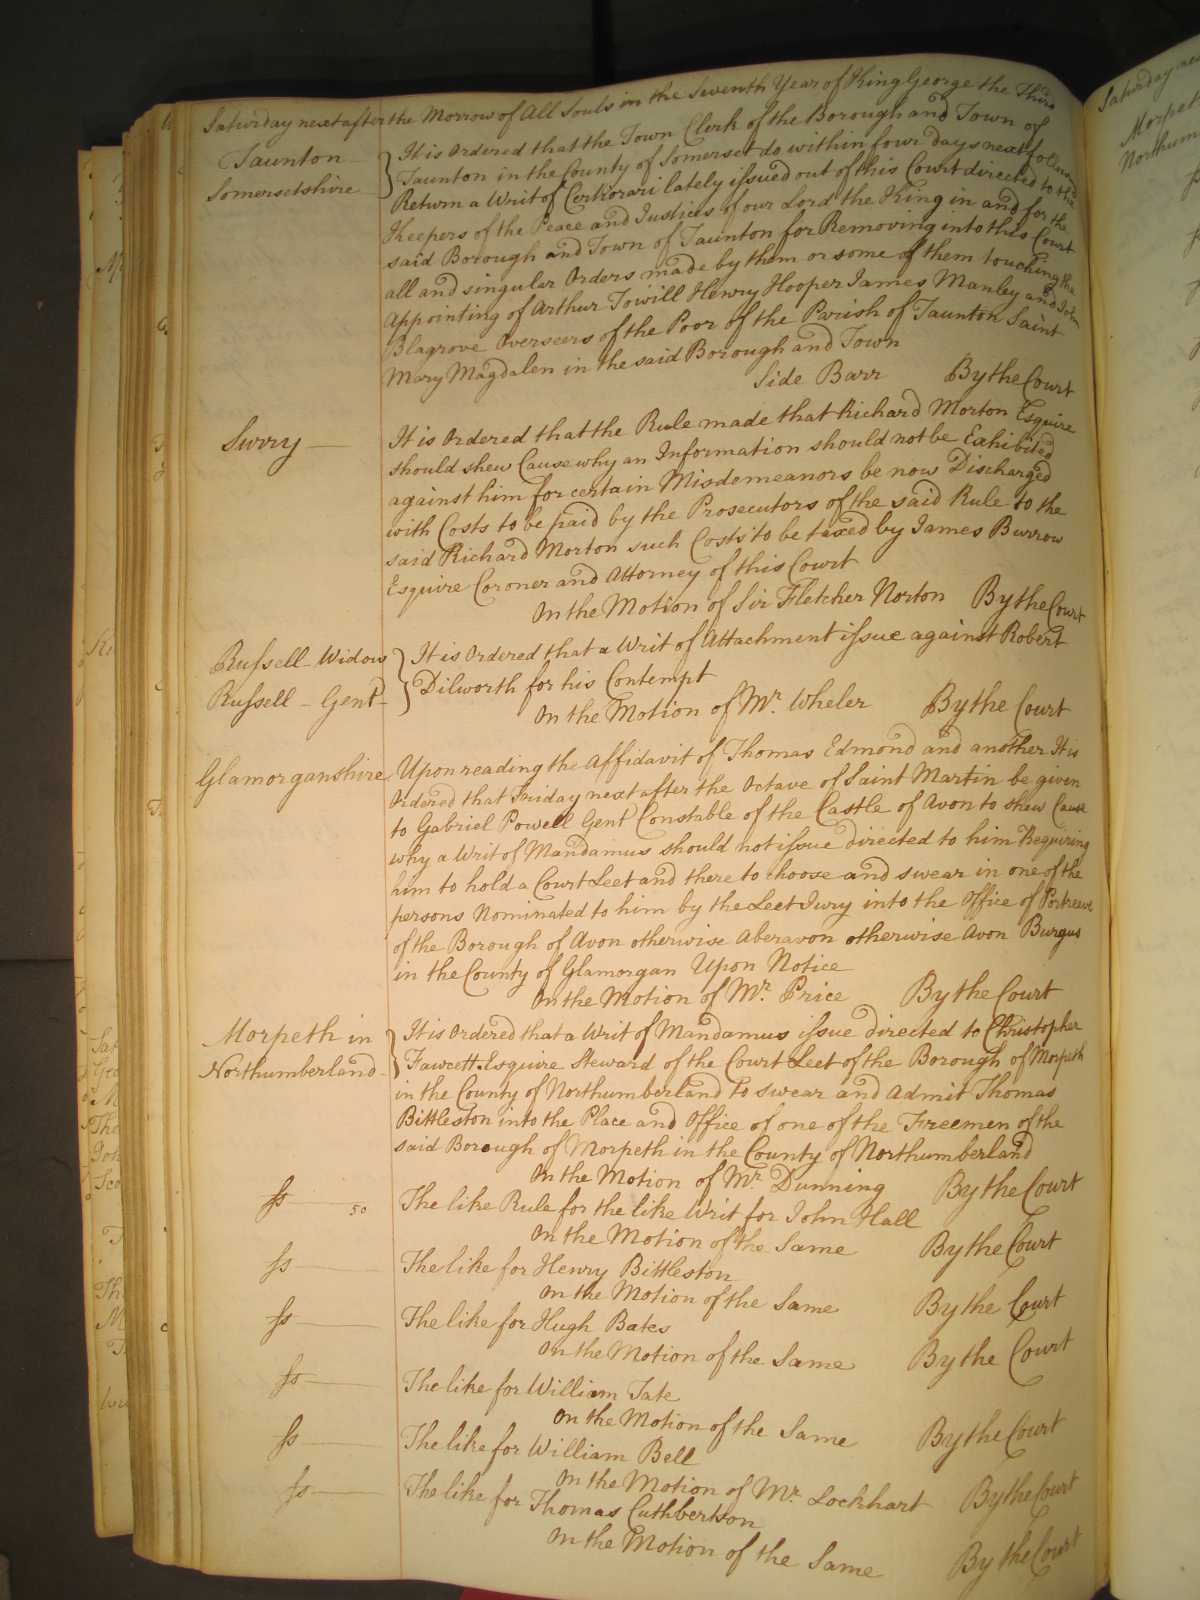 Saturday next after the Morrow of All Souls in the Seventh Year of King George the Third
Taunton
Somersetshire
It is Ordered that the Town Clerk of the Borough and Town of
Taunton in the County of Somerset do within four days next following
Return a Writ of Certiorari lately issued out of this Court directed to the
Keepers of the Peace and Justices of our Lord the King in and for the
said Borough and Town of Taunton for Removing into this Court
all and singular Orders made by them or some of them touching the
Appointing of Arthur Towill Henry Hooper James Manley and John
Blagrove Overseers of the Poor of the Parish of Taunton Saint
Mary Magdalen in the said Borough and Town
Side Barr By the Court
Surry
It is Ordered that the Rule made that Richard Morton Esquire
should shew Cause why an Information should not be Exhibited
against him for certain Misdemeanors be now Discharged
with Costs to be paid by the Prosecutors of the said Rule to the
said Richard Morton such Costs to be taxed by James Burrow
Esquire Coroner and Attorney of this Court
On the Motion of Sir Fletcher Norton By the Court
Russell - Widow
Russell - Gent
It is Ordered that a Writ of Attachment issue against Robert
Dilworth for his Contempt
On the Motion of Mr. Wheler By the Court
Glamorganshire
Upon reading the Affidavit of Thomas Edmond and another It is
Ordered that Friday next after the Octave of Saint Martin be given
to Gabriel Powell Gent Constable of the Castle of Avon to shew Cause
why a Writ of Mandamus should not issue directed to him Requiring
him to hold a Court Leet and there to choose and swear in one of the
persons Nominated to him by the Leet Jury into the Office of Portreeve
of the Borough of Avon otherwise Aberavon otherwise Avon Burgus
in the County of Glamorgan Upon Notice
On the Motion of Mr. Price By the Court
Morpeth in
Northumberland
It is Ordered that a Writ of Mandamus issue directed to Christopher
Fawcett Esquire Steward of the Court Leet of the Borough of Morpeth
in the County of Northumberland to swear and Admit Thomas
Bittleston into the Place and Office of one of the Freemen of the
said Borough of Morpeth in the County of Northumberland
On the Motion of Mr. Dunning By the Court
ss 50 The like Rule for the like Writ for John Hall
On the Motion of the Same By the Court
ss The like for Henry Bittleston
On the Motion of the Same By the Court
ss The like for Hugh Bates
On the Motion of the Same By the Court
ss The like for William Tate
On the Motion of the Same By the Court
ss The like for William Bell
On the Motion of Mr. Lockhart By the Court
ss The like for Thomas Cuthbertson
On the Motion of the Same By the Court